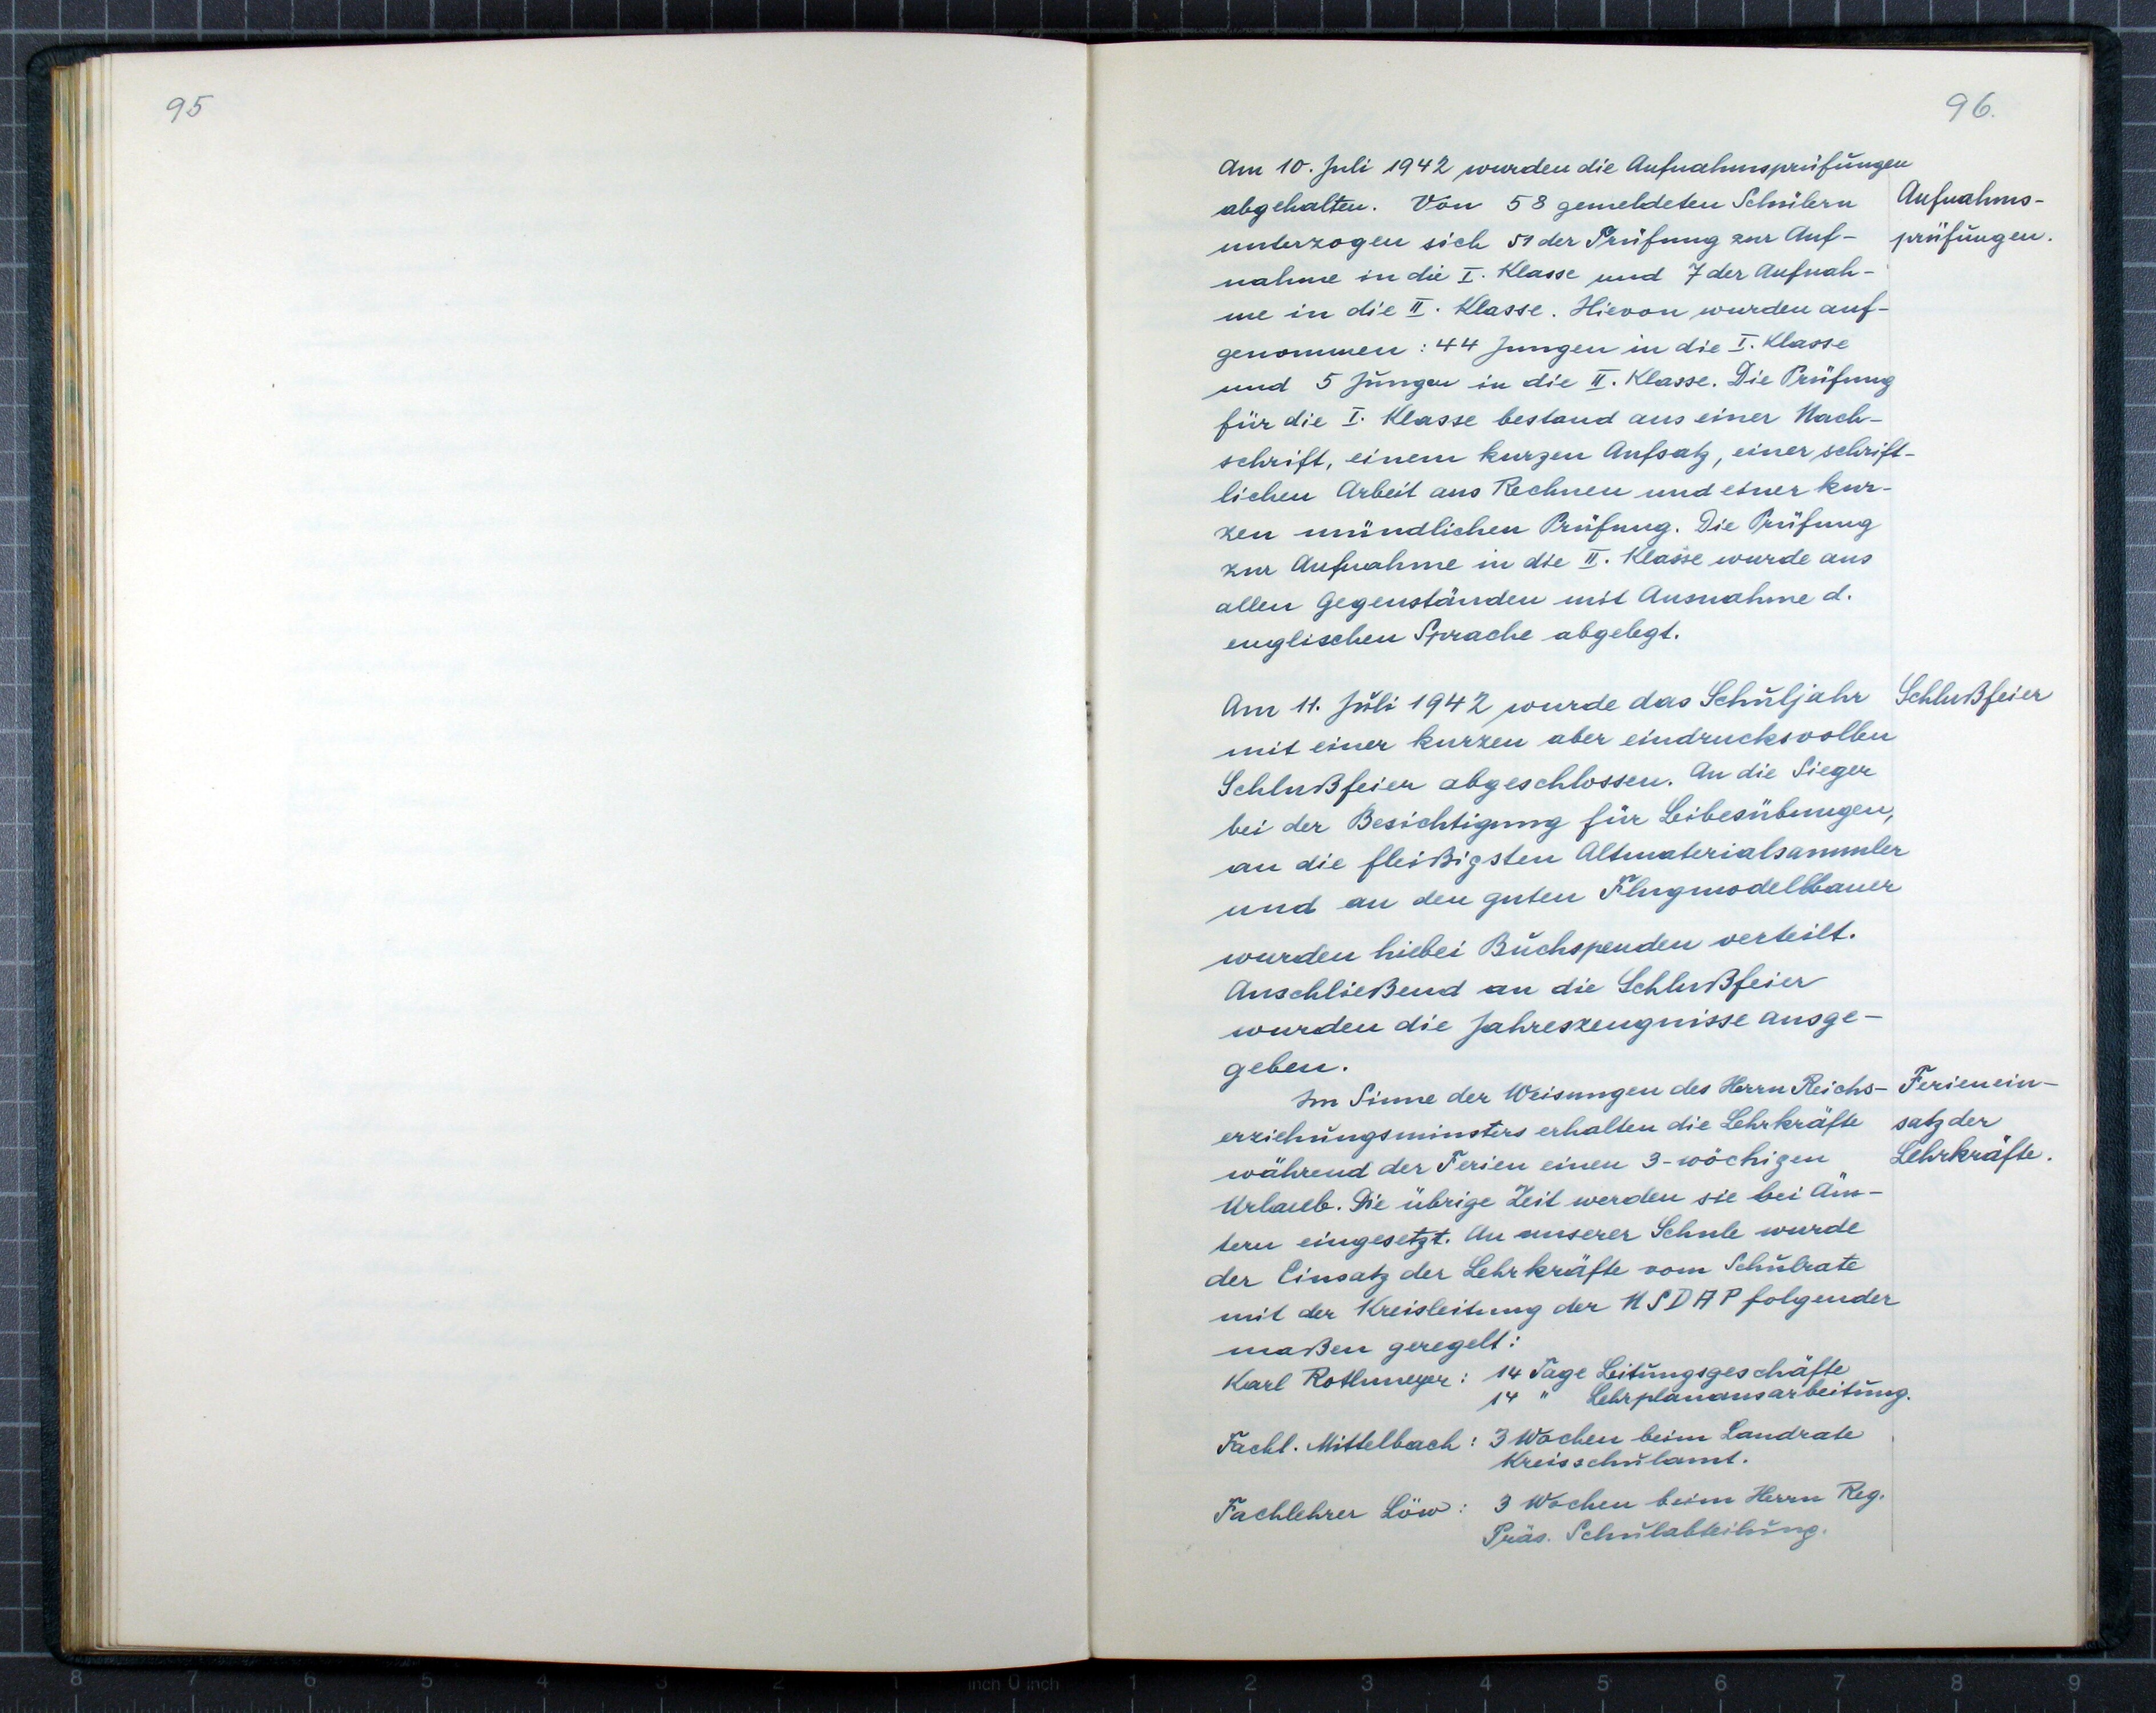 95
96.
Am 10. Juli 1942 wurden die Aufnahmsprüfungen
abgehalten. Von 58 gemeldeten Schülern
unterzogen sich 51 der Prüfung zur Auf-
nahme in die I. Klasse und 7 der Aufnah-
me in die II. Klasse. Hievon wurden auf-
genommen: 44 Jungen in die I. Klasse
und 5 Jungen in die II. Klasse. Die Prüfung
für die I. Klasse bestand aus einer Nach-
schrift, einem kurzen Aufsatz, einer schrift-
lichen Arbeit aus Rechnen und einer kur-
zen mündlichen Prüfung. Die Prüfung
zur Aufnahme in die II. Klasse wurde aus
allen Gegenständen mit Ausnahme d.
englischen Sprache abgelegt.
Aufnahms-
prüfungen.
Am 11. Juli 1942 wurde das Schuljahr
mit einer kurzen aber eindrucksvollen
Schlußfeier abgeschlossen. An die Sieger
bei der Besichtigung für Leibesübungen,
an die fleißigsten Altmaterialsammler
und an den guten Flugmodellbauer
wurden hiebei Buchspenden verteilt.
Anschließend an die Schlußfeier
wurden die Jahreszeugnisse ausge-
geben.
Schlußfeier
Im Sinne der Weisungen des Herrn Reichs-
erziehungsminsters erhalten die Lehrkräfte
während der Ferien einen 3-wöchigen
Urlaub. Die übrige Zeit werden sie bei Äm-
tern eingesetzt. An unserer Schule wurde
der Einsatz der Lehrkräfte vom Schulrate
mit der Kreisleitung der NSDAP folgender
maßen geregelt:
Ferienein-
satz der
Lehrkräfte.
Karl Rothmeyer: 14 Tage Leitungsgeschäfte
14 " Lehrplanausarbeitung.
Fachl. Mittelbach: 3 Wochen beim Landrate
Kreisschulamt.
Fachlehrer Löw: 3 Wochen beim Herrn Reg.
Präs. Schulabteilung.
8 7 6 5 4 3 2 1 inch 0 inch 1 2 3 4 5 6 7 8 9